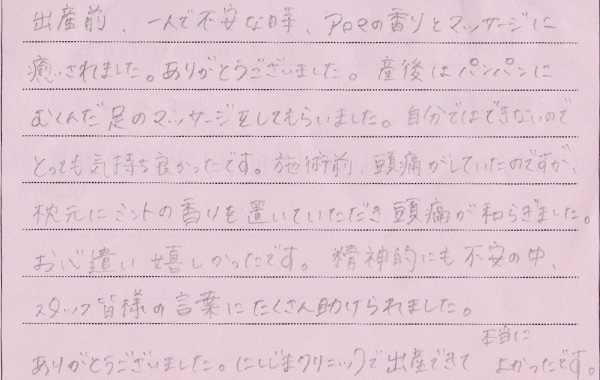 出産前、一人で不安な時、アロマの香りとマッサージに
癒されました。ありがとうございました。産後はパンパンに
むくんだ足のマッサージをしてもらいました。自分ではできないので
とっても気持ち良かったです。施術前、頭痛がしていたのですが、
枕元にミントの香りを置いていただき頭痛が和らぎました。
お心遣い嬉しかったです。精神的にも不安の中、
スタッフ皆様の言葉にたくさん助けられました。
ありがとうございました。にしじまクリニックで出産できて本当によかったです。